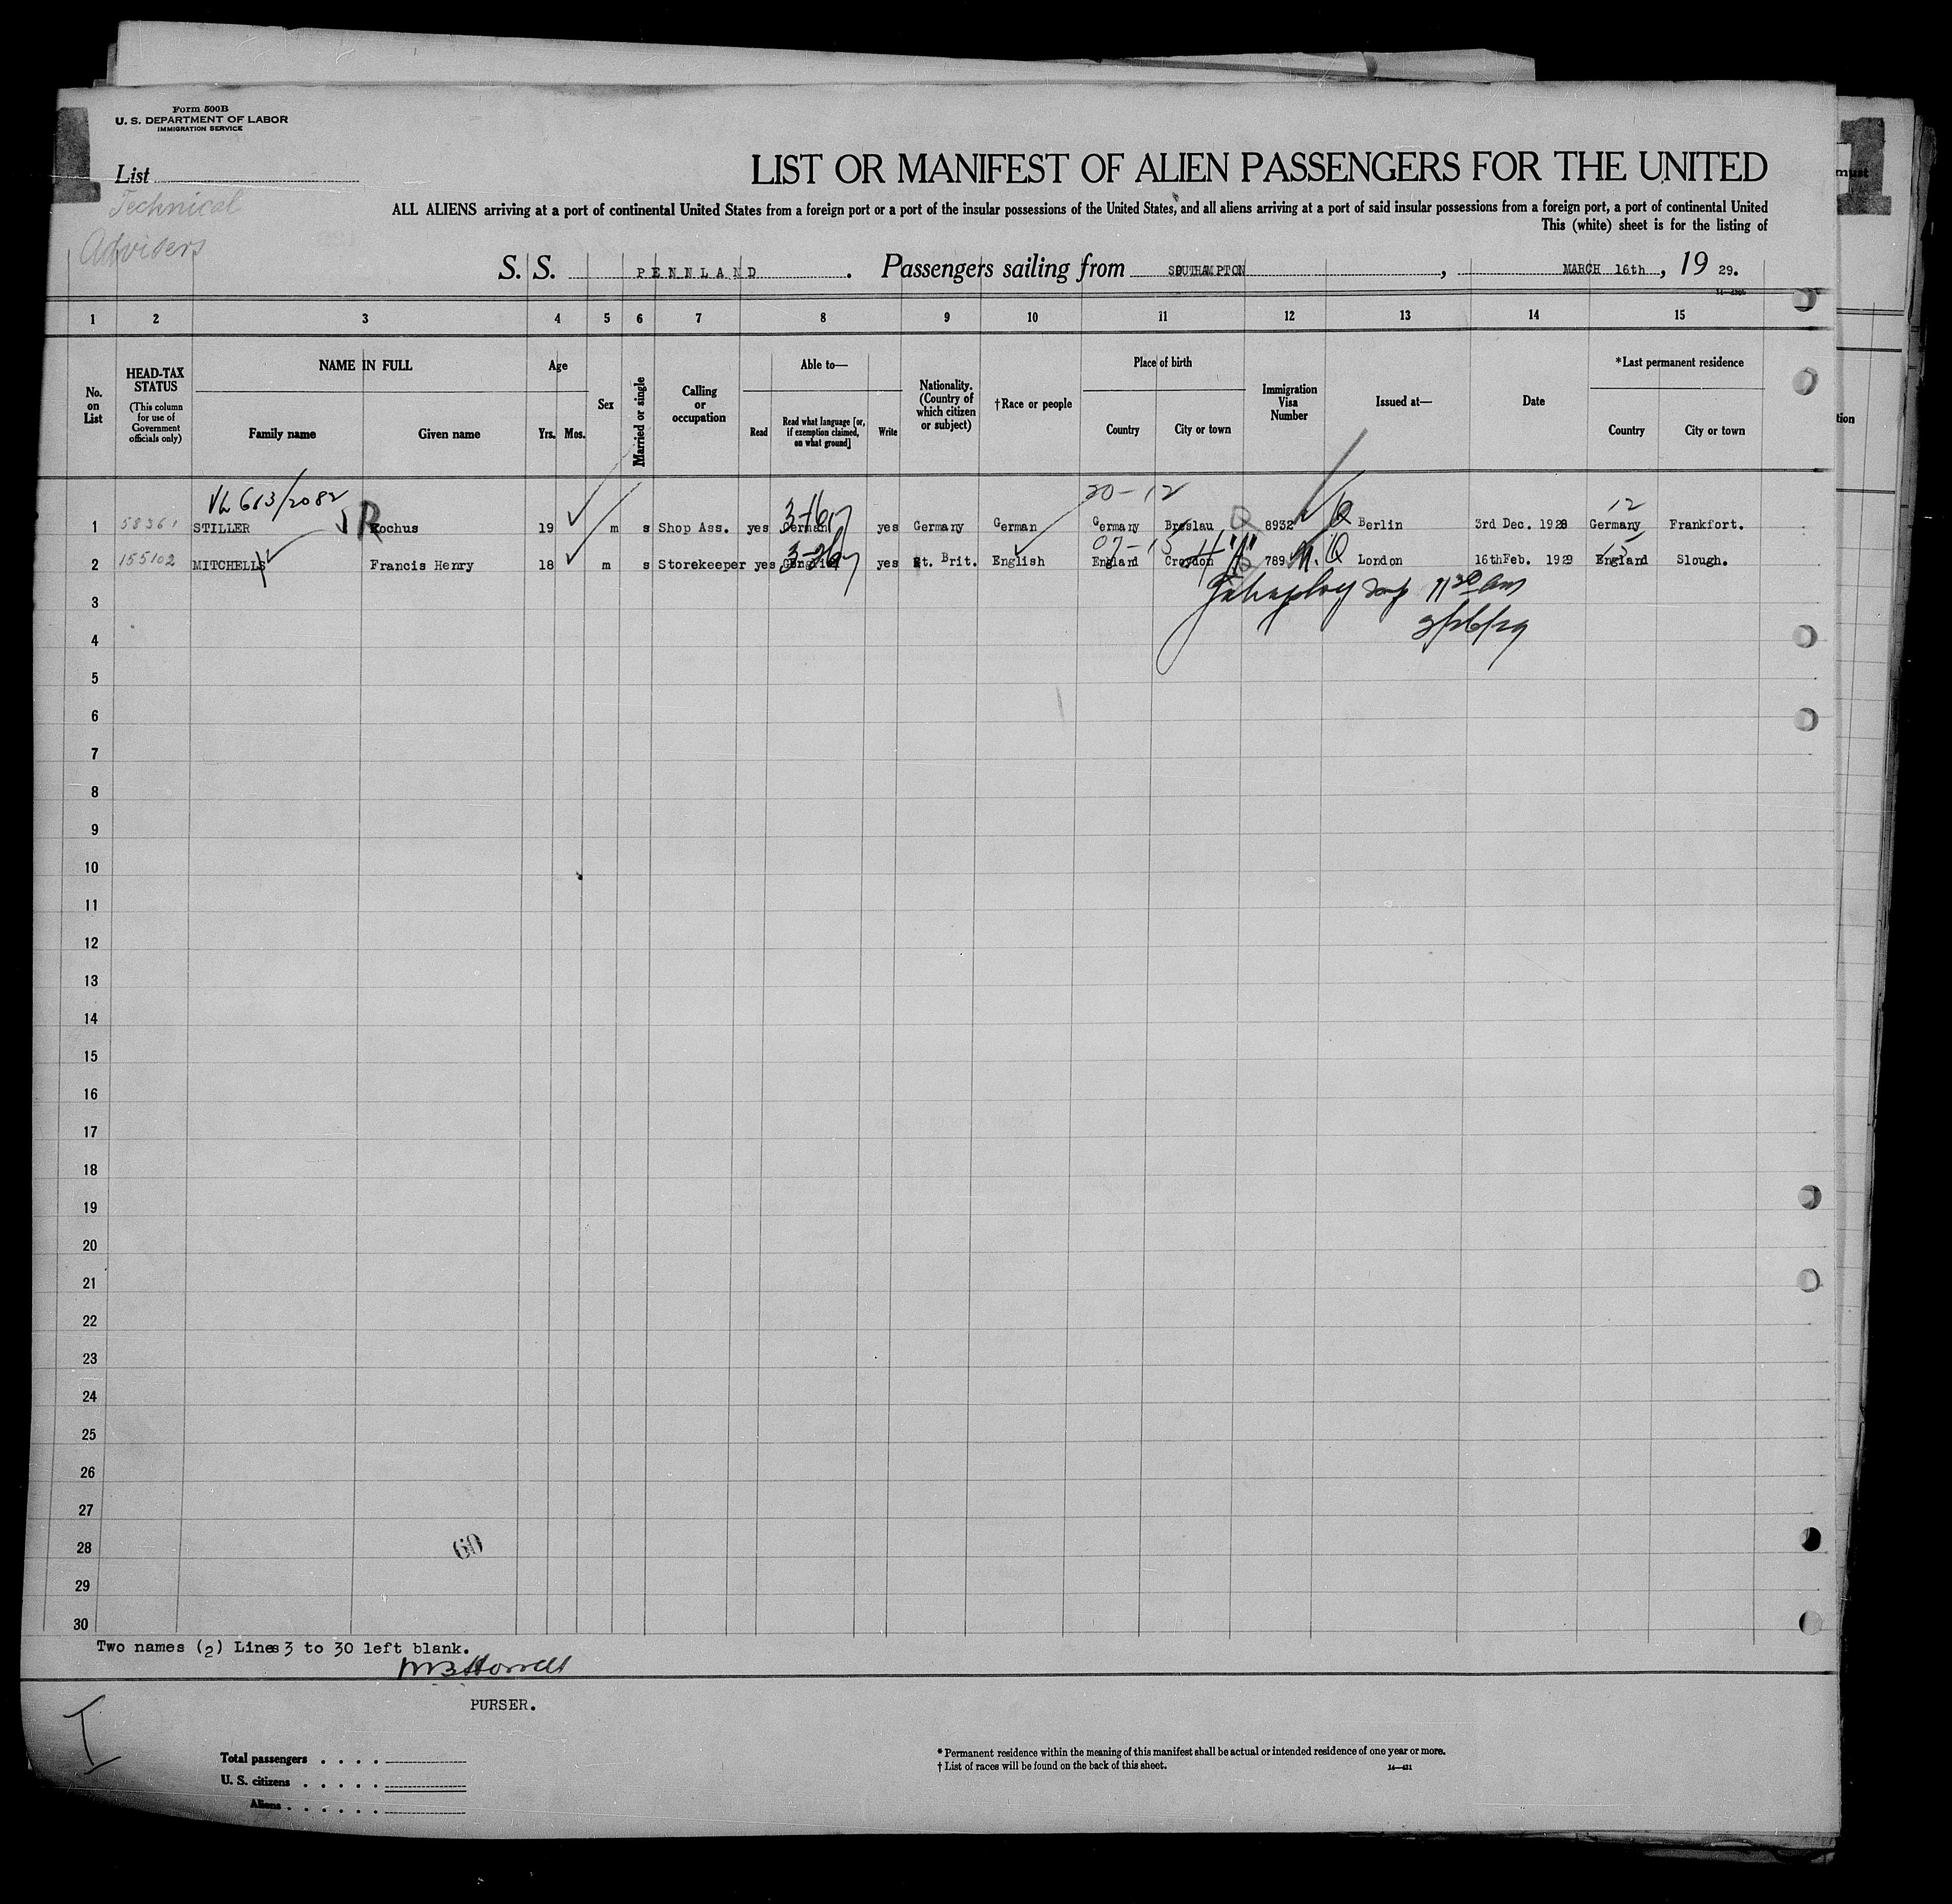 Form 500B
U. S. DEPARTMENT OF LABOR
IMMIGRATION SERVICE
1
must
1
List
Technical
Advisers
LIST OR MANIFEST OF ALIEN PASSENGERS FOR THE UNITED
ALL ALIENS arriving at a port of continental United States from a foreign port or a port of the insular possessions of the United States, and all aliens arriving at a port of said insular possessions from a foreign port, a port of continental United
This (white) sheet is for the listing of
S. S. PENNLAND. Passengers sailing from SOUTHAMPTON, MARCH 16th, 19 29.
1 2 3 4 5 6 7 8 9 10 11 12 13 14 15
No. on List
HEAD-TAX STATUS
(This column for use of Government officials only)
NAME IN FULL
Family name Given name
Age
Yrs. Mos.
Sex
Married or single
Calling or occupation
Able to—
Read
Read what language [or, if exemption claimed, on what ground]
Write
Nationality. (Country of which citizen or subject)
†Race or people
Place of birth
Country City or town
Immigration Visa Number
Issued at—
Date
*Last permanent residence
Country City or town
tion
613/2082 20-12 12
1 58361 STILLER Rochus 19 m s Shop Ass. yes German yes Germany German Germany Breslau Q 8932 Q Berlin 3rd Dec. 1928 Germany Frankfort.
07-15 15
2 155102 MITCHELLS Francis Henry 18 m s Storekeeper yes English yes Gt. Brit. English England Croydon 789 Q London 16thFeb. 1929 England Slough.
3 11 30 am
4 3/26/29
5
6
7
8
9
10
11
12
13
14
15
16
17
18
19
20
21
22
23
24
25
26
27
28 60
29
30
Two names (2) Lines 3 to 30 left blank.
PURSER.
I
Total passengers . . . .
U. S. citizens . . . . .
Aliens . . . . . .
* Permanent residence within the meaning of this manifest shall be actual or intended residence of one year or more.
† List of races will be found on the back of this sheet.
14—421